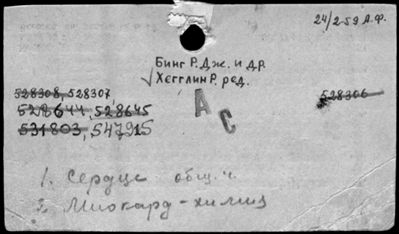 24/2-59 А.Ф.
Бинг Р. Дж. и др.
√ Хегглин Р. ред.
528308, 528307
528306
528644, 528645
531803, 547915
А С
1. Сердце общ. ч.
2. Миокард - химия